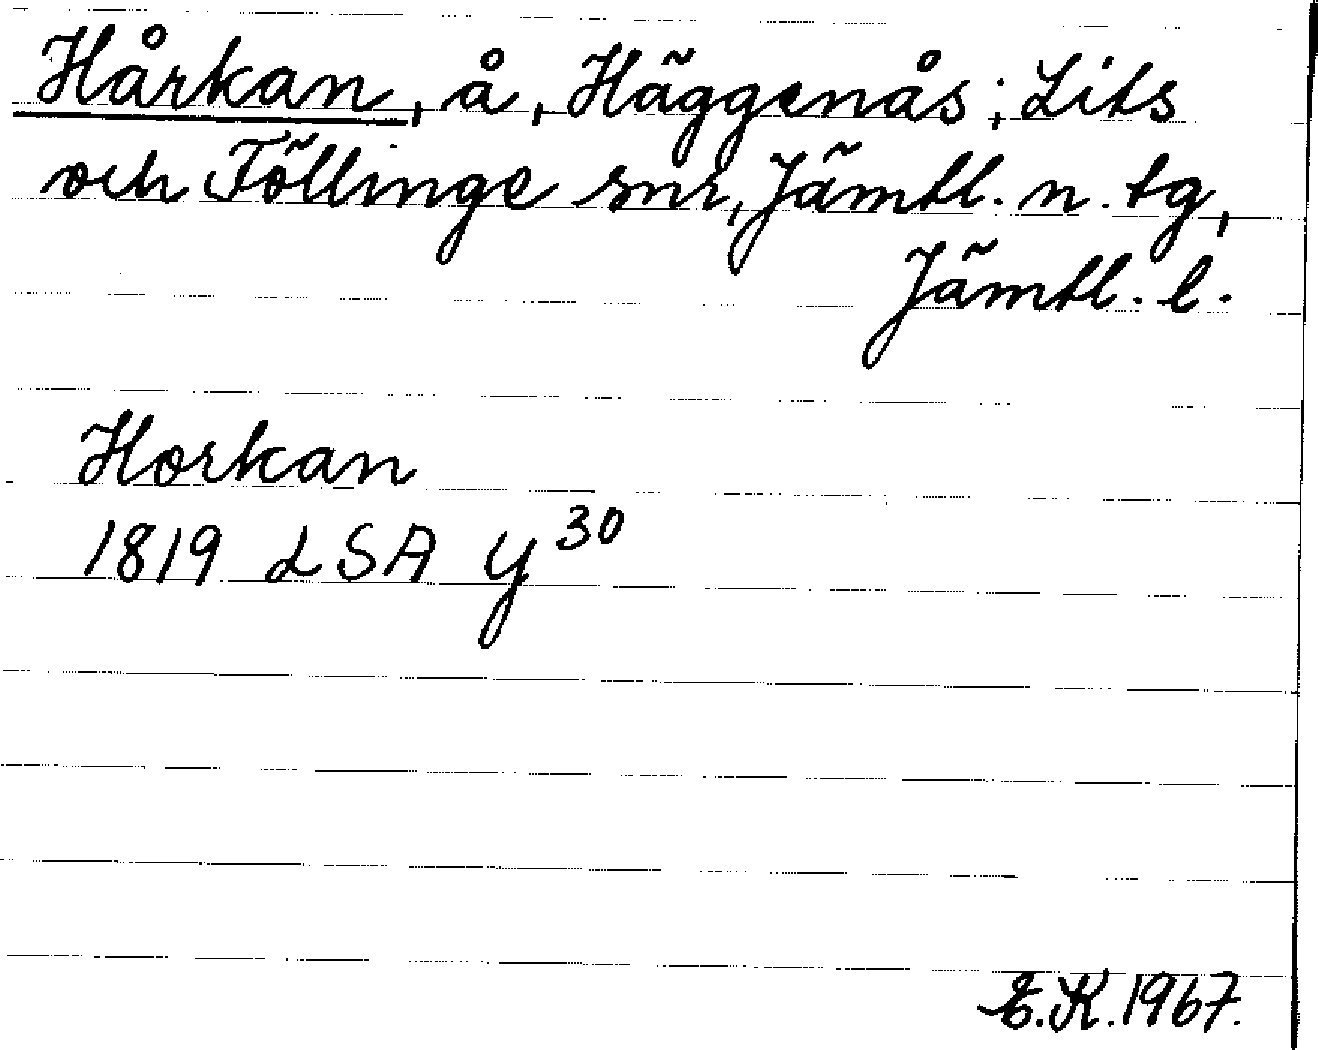 Hårkan, å, Häggenås, Lits
och Föllinge snr, Jämtl. n. tg,
Jämtl. l.
Horkan
1819 LSA Y 30
E.K. 1967.